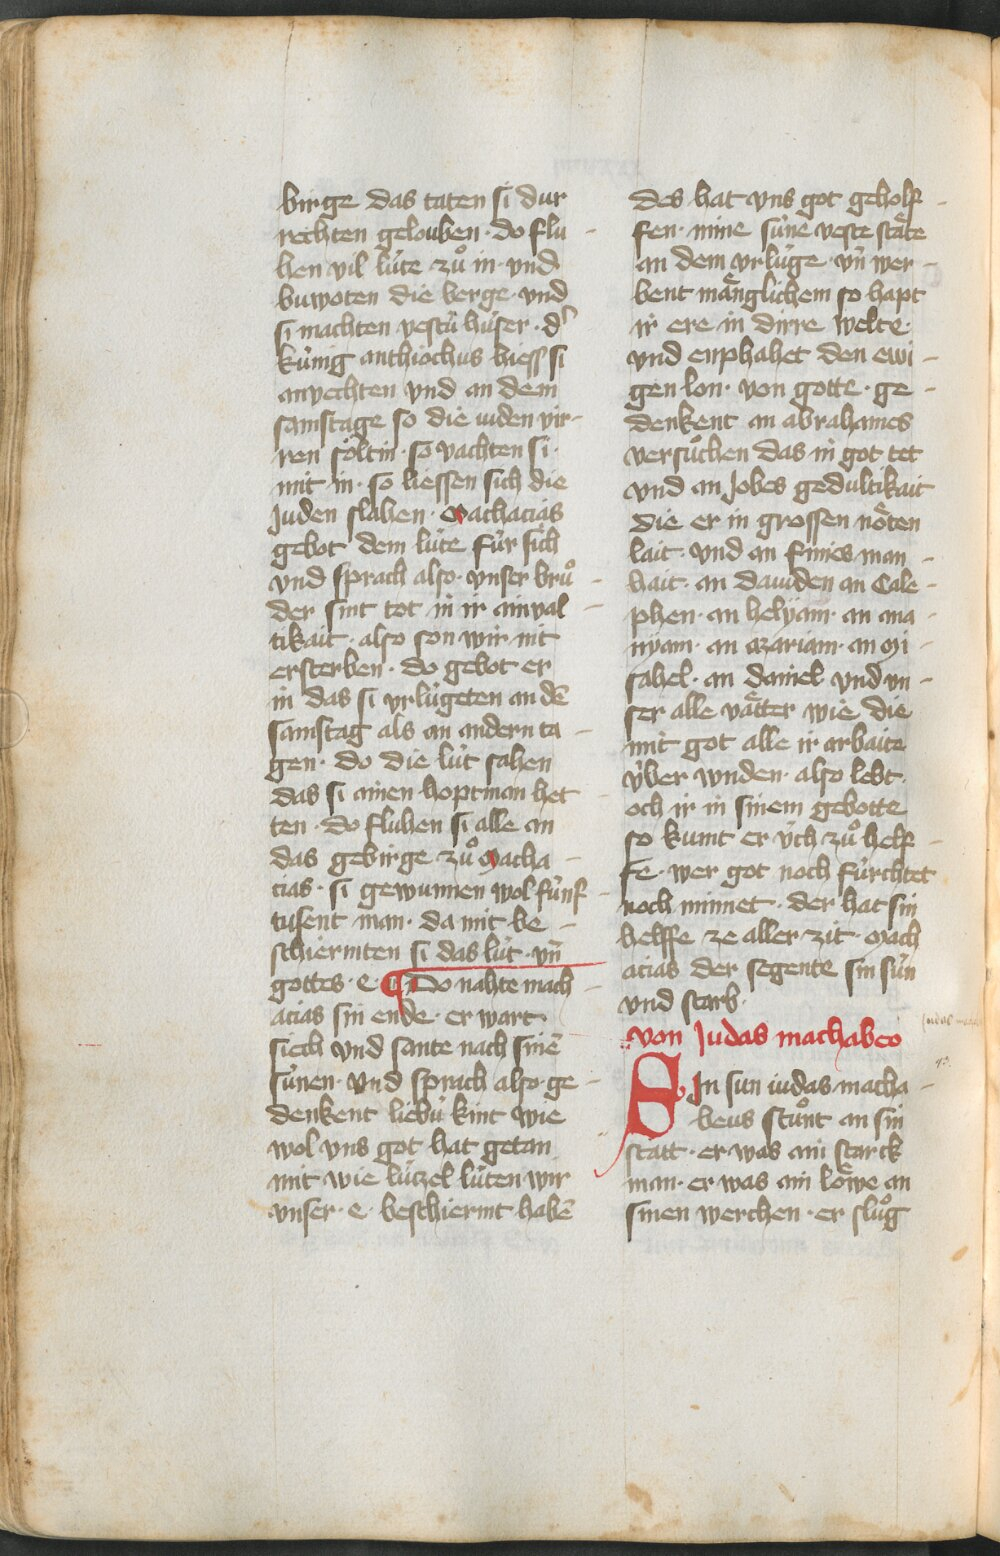 birge das taten si dur
rechten gelouben · do flu -
hen vil lu̍te zů in · vnd
buwoten die berge · vnd
si machten vestu̍ hu̍ser · d᾽
ku̍nig anthiochus hiess si
anvechten vnd an dem
samstage so die iuden vir -
ren so̍ltin · so vachten si ·
mit in · so liessen sich die
Juden slahen · Machacias
gebot dem lu̍te fu̍r sich
vnd sprach also · vnser brů -
der sint tot in ir ainval -
tikait · also son wir nit
ersterben · do gebot er
in das si vrlu̍geten an dē
samstag als an andern ta -
gen · do die lu̍t sahen
das si ainen hoptman het
ten · do fluhen si alle an
das gebirge zů Macha -
cias · si gewunnen wol fu̍nf -
tusent man · da mit be -
schiermten si das lu̍t · vn̄
gottes · e · ¶ Do nahte mach -
acias sin ende · er wart
siech vnd sante nach sinē
su̍nen · vnd sprach also · ge -
denkent liebu̍ kint wie
wol vns got hat getan
mit wie lu̍tzel lu̍ten wir
vnser · e · beschiermt habē
des hat vns got geholf -
fen · mine su̍ne veste stäte
an dem vrlu̍ge · vn̄ wer -
bent mänglichem so hapt
ir ere in dirre welte ·
vnd enphahet den ewi -
gen lon · von gotte · ge -
denkent an abrahames
versůchen das in got tet
vnd an Jobes gedultikait
die er in grossen nöten
lait · vnd an finies man -
hait · an dauiden an Cale -
phen · an helyam · an ana -
nyam · an azariam · an Mi -
sahel · an daniel vnd vn -
ser alle vätter wie die
mit got alle ir arbaite
v̍ber wnden · also lebt ·
och ir in sinem gebotte
so kumt er v̍ch zů helf -
fe · wer got noch fu̍rchtet
noch minnet · der hat sin
helffe ze aller zit · Mach
acias der segente sin su̍n
vnd starb ·
von Judas machabeo
SJn sun iudas macha -
beus stůnt an sin
statt · er was ain starck
man · er was ain löwe an
sinen werchen · er slůg